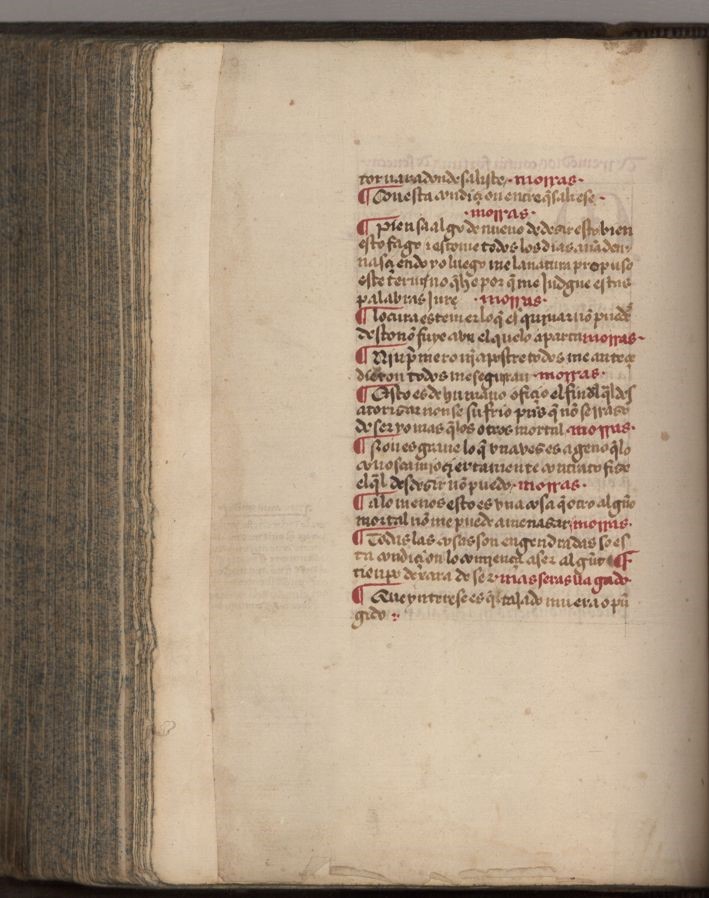 tornar a donde saliste · morras ·
¶ Con esta condiçion entre q̃ saliese ·
· morras ·
¶ piensa algo de nueuo de desir esto bien
esto fago τ esto me todos los dias auia den
nasçiendo yo luego me la natura propuso
este termino q̃ he por q̃ me judgue estas
palabras jure · morras ·
¶ locura es temer lo q̃ esquiuar nõ puede
desto nõ fuye avn el que lo aparta morras ·
¶ Nin p̃mero ni apostre todos me ante
dieron todos me seguiran · morras ·
¶ Esto es de humano ofiçio el fin
non se sufrio pues q̃ nõ
de ser yo mas q̃ los otros mortal · morras ·
¶ Non es graue lo q̃ vna ves es ageno
çiertamente contrato fise
el q̃l desdesir nõ puedo · morras ·
¶ alo menos esto es vna cosa q̃ otro alguo
mortal nõ me puede amenasar morras ·
¶ Todas las cosas son engendradas so es
ta condiçion lo q̃ comença a ser algũt
tienpo dexara de ser · mas seras llagado ·
¶ Que ynterese es q̃ tajado muera o pũ
gido :·